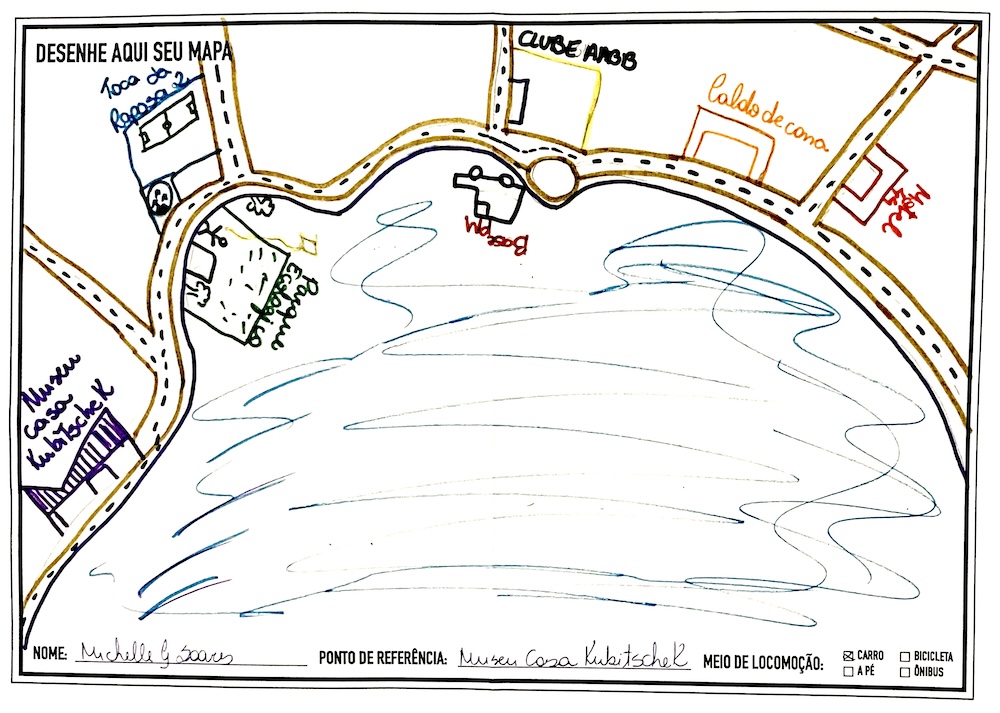 DESENHE AQUI SEU MAPA
Toca da
Raposa 2
CLUBE AABB
Caldo de cana
Motel
Base PM
Parque
Ecológico
Museu
Casa
KubitscheK
NOME: Michelle G Soares
PONTO DE REFERÊNCIA: Museu Casa KubitscheK
MEIO DE LOCOMOÇÃO:
☒ CARRO ☐ BICICLETA
☐ A PÉ ☐ ÔNIBUS